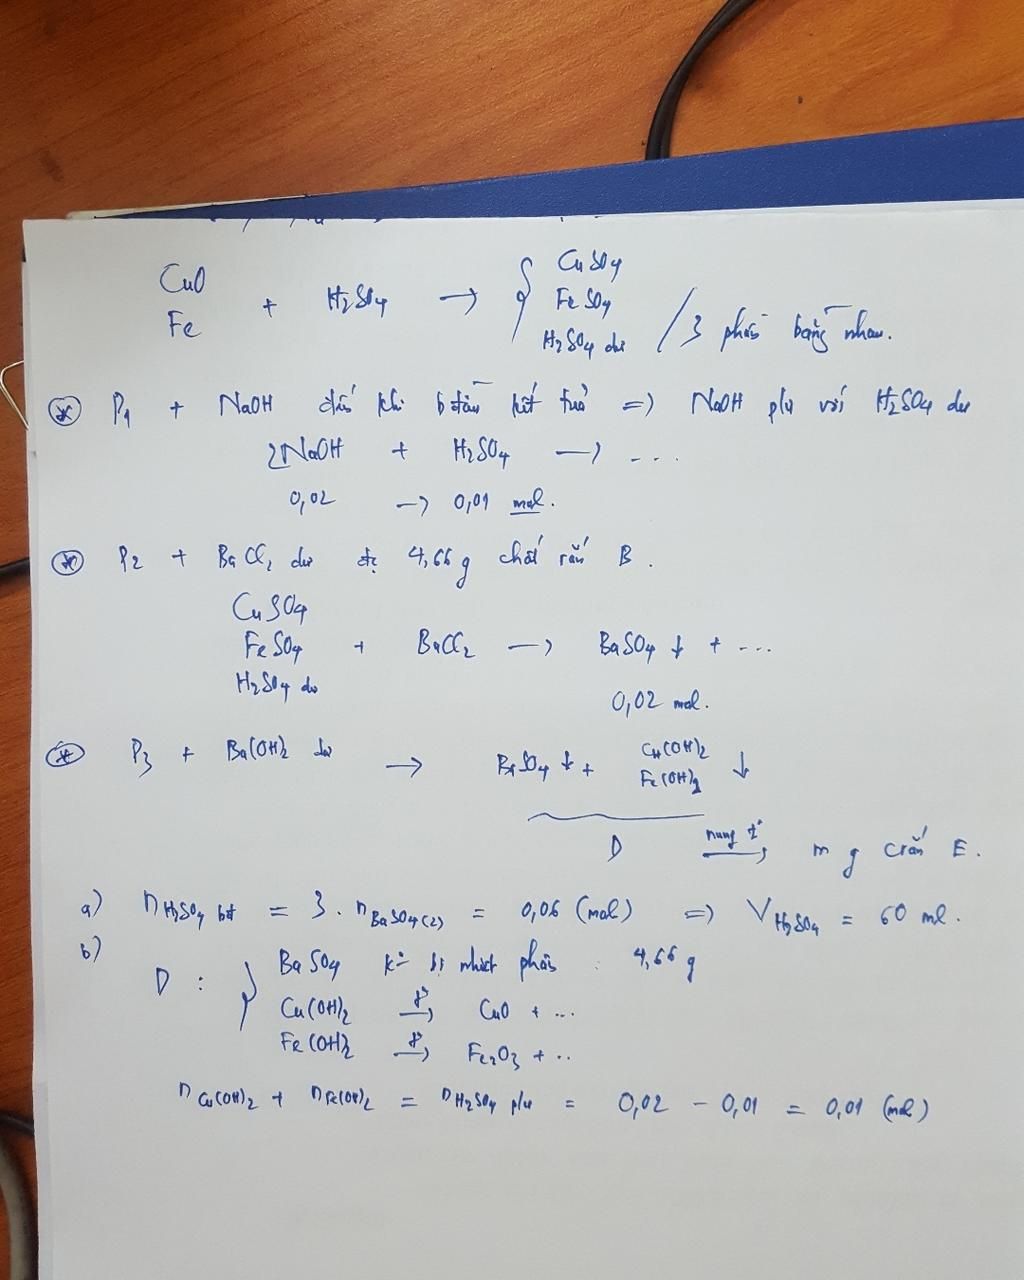 CuO
Fe + H2SO4 → { CuSO4
FeSO4
H2SO4 dư / 3 phần bằng nhau.
* P1 + NaOH đến khi b.đầu kết tủa => NaOH pứ với H2SO4 dư
2NaOH + H2SO4 → ...
0,02 → 0,01 mol.
* P2 + BaCl2 dư đc 4,66 g chất rắn B.
CuSO4
FeSO4 + BaCl2 → BaSO4 ↓ + ...
H2SO4 dư
0,02 mol.
* P3 + Ba(OH)2 dư → BaSO4 ↓ + Cu(OH)2
Fe(OH)2 ↓
D nung t° → m g crắn E.
a) n H2SO4 bđ = 3. n BaSO4(2) = 0,06 (mol) => V H2SO4 = 60 ml.
b)
D : { BaSO4 k° bị nhiệt phân : 4,66 g
Cu(OH)2 t°→ CuO + ...
Fe(OH)2 t°→ Fe2O3 + ..
n Cu(OH)2 + n Fe(OH)2 = n H2SO4 pứ = 0,02 - 0,01 = 0,01 (mol)